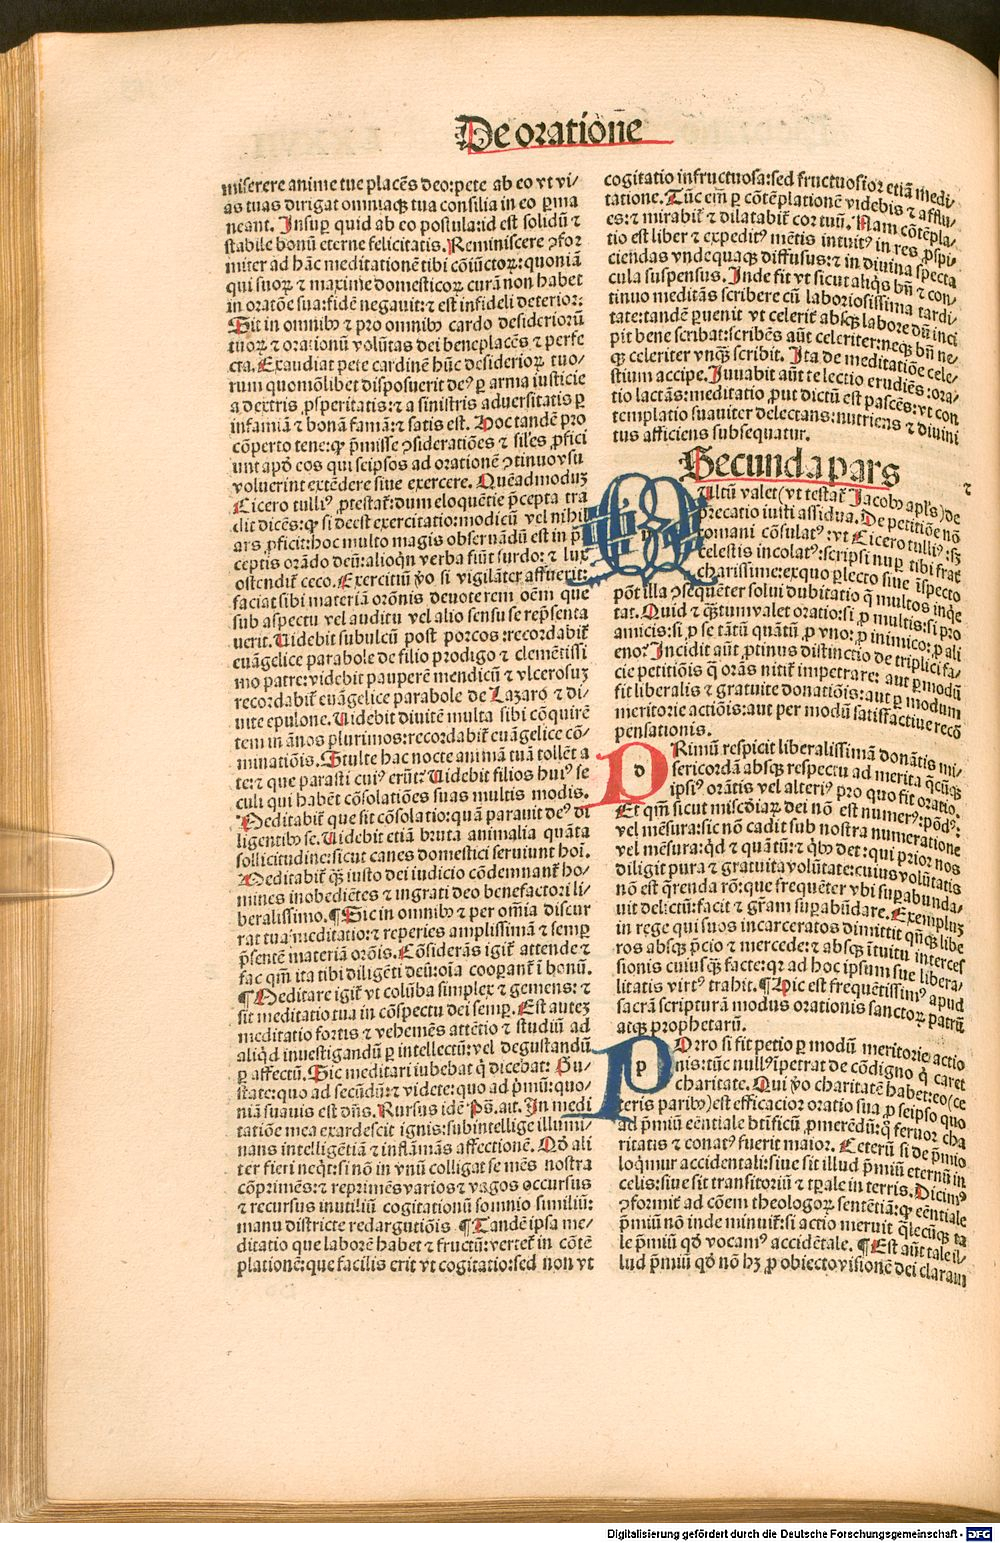 De oratiōne
miserere anime tue placēs deo: pete ab eo vt vi⸗
as tuas dirigat omniaqꝫ tua consilia in eo ꝑma
neant. Insuꝑ quid ab eo postula: id est solidū ⁊
stabile bonū eterne felicitatis. Reminiscere ꝯfor
miter ad hāc meditationē tibi cōiūctoꝝ: quoniā
qui suoꝝ ⁊ maxime domesticoꝝ curā non habet
in oratōe sua: fidē negauit: ⁊ est infideli deterior:
Sit in omnibꝰ ⁊ pro omnibꝰ cardo desideriorū
tuoꝝ ⁊ orationū volūtas dei beneplacēs ⁊ perfe
cta. Exaudiat pete cardinē hūc desiderioꝝ tuo⸗
rum quomōlibet disposuerit deꝰ ꝑ arma iusticie
a dextris ꝓsperitatis: ⁊ a sinistris aduersitatis ꝑ
infamiā ⁊ bonā famā: ⁊ satis est. Hoc tandē pro
cōperto tene: ꝙ p̄misse ꝯsideratiōes ⁊ siłes ꝓfici
unt apd̕ eos qui seipsos ad orationē ꝯtinuo vsu
voluerint extēdere siue exercere. Quēadmoduꝫ
Cicero tulliꝰ ꝓtestat᷑: dum eloquētie p̄cepta tra
dit dicēs: ꝙ si deest exercitatio: modicū vel nihil
ars ꝓficit: hoc multo magis obseruādū est in p̄
ceptis orādo deū: alioqͥn verba fiūt surdo: ⁊ lux
ostendit᷑ ceco. Exercitiū ꝟo si vigilāter affuerit:
faciat sibi materiā orōnis deuote rem oēm que
sub aspectu vel auditu vel alio sensu se rep̄senta
uerit. Uidebit subulcū post porcos: recordabit᷑
euāgelice parabole de filio prodigo ⁊ clemētissi
mo patre: videbit pauperē mendicū ⁊ vlcerosuꝫ
recordabit᷑ euāgelice parabole de Lazaro ⁊ di⸗
uite epulone. Uidebit diuitē multa sibi cōquirē
tem in ānos plurimos: recordabit᷑ euāgelice cō⸗
minatiōis. Stulte hac nocte animā tuā tollēt a
te: ⁊ que parasti cuiꝰ erūt: Uidebit filios huiꝰ se
culi qui habēt cōsolatiōes suas multis modis.
Meditabit᷑ que sit cōsolatio: quā parauit deꝰ di
ligentibꝰ se. Uidebit etiā bruta animalia quāta
sollicitudine: sicut canes domestici seruiunt hoī.
Meditabit᷑ qꝫ iusto dei iudicio cōdemnant᷑ ho⸗
mines inobediētes ⁊ ingrati deo benefactori li⸗
beralissimo. ¶ Sic in omnibꝰ ⁊ per om̄ia discur
rat tua meditatio: ⁊ reperies amplissimā ⁊ semꝑ
p̄sentē materiā orōis. Cōsiderās igit᷑ attende ⁊
fac qm̄ ita tibi diligēti deū: oīa cooꝑant᷑ ī bonū.
¶ Meditare igit᷑ vt colūba simplex ⁊ gemens: ⁊
sit meditatio tua in cōspectu dei semꝑ. Est auteꝫ
meditatio fortis ⁊ vehemēs attētio ⁊ studiū ad
aliqͥd inuestigandū ꝑ intellectū: vel degustandū
ꝑ affectū. Sic meditari iubebat q̄ dicebat: Gu⸗
state: quo ad secūdū: ⁊ videte: quo ad p̄mū: quo⸗
niā suauis est dn̄s. Rursus idē Pš. ait. In medi
tatiōe mea exardescit ignis: subintellige illumi⸗
nans intelligētiā ⁊ inflāmās affectionē. Qd̕ ali
ter fieri neqͥt: si nō in vnū colligat se mēs nostra
cōprimēs: ⁊ reprimēs varios ⁊ vagos occursus
⁊ recursus inutiliū cogitationū somnio similiū:
manu districte redargutiōis ¶ Tandē ipsa me⸗
ditatio que laborē habet ⁊ fructū: vertet᷑ in cōtē
plationē: que facilis erit vt cogitatio: sed non vt
cogitatio infructuosa: sed fructuosior etiā medi⸗
tatione. Tūc em̄ ꝑ cōtēplationē videbis ⁊ afflu⸗
es: ⁊ mirabit᷑ ⁊ dilatabit᷑ cor tuū. Nam cōtēpla⸗
tio est liber ⁊ expeditꝰ mētis intuitꝰ in res ꝓspi⸗
ciendas vndequaqꝫ diffusus: ⁊ in diuina specta
cula suspensus. Inde fit vt sicut aliqͥs bn̄ ⁊ con⸗
tinuo meditās scribere cū laboriosissima tardi⸗
tate: tandē ꝑuenit vt celerit᷑ absqꝫ labore dū inci
pit bene scribat: scribēs aūt celeriter: neqꝫ bn̄ ne⸗
qꝫ celeriter vnqꝫ scribit. Ita de meditatiōe cele⸗
stium accipe. Iuuabit aūt te lectio erudiēs: ora⸗
tio lactās: meditatio ꝓut dictū est pascēs: vt con
templatio suauiter delectans: nutriens ⁊ diuini
tus afficiens subsequatur.
Secunda pars
Ultū valet (vt testat᷑ Jacobꝰ apl̄s) de
precatio iusti assidua. De petitiōe nō
romani cōsulatꝰ: vt Cicero tulliꝰ: sꝫ
celestis incolatꝰ: scripsi nuꝑ tibi frat᷑
charissime: ex quo ꝑlecto siue īspecto
pōt illa ꝯsequēter solui dubitatio q̄ multos inde
tat. Quid ⁊ qꝫtum valet oratio: si ꝓ multis: si pro
amicis: si ꝓ se tātū quātū ꝓ vno: ꝓ inimico: ꝓ ali
eno: Incidit aūt ꝓtinus distinctio de triplici fa⸗
cie petitiōis q̄ orās nitit᷑ impetrare: aut ꝑ modū
fit liberalis ⁊ gratuite donatiōis: aut ꝑ modum
meritorie actiōis: aut per modū satisfactiue recō
pensationis.
d
Rimū respicit liberalissimā donātis mi⸗
sericordiā absqꝫ respectu ad merita qͨcūqꝫ
ipsiꝰ orātis vel alteriꝰ pro quo fit oratio.
Et qm̄ sicut miscd̓iaꝝ dei nō est numerꝰ: pōdꝰ:
vel mēsura: sic nō cadit sub nostra numeratione
vel mēsura: qͥd ⁊ quātū: ⁊ qͥbꝰ det: qui prior nos
diligit pura ⁊ gratuita volūtate: cuius volūtatis
nō est q̄renda rō: que frequēter vbi suꝑabunda⸗
uit delictū: facit ⁊ gr̄am suꝑabūdare. Exempluꝫ
in rege qui suos incarceratos dimittit qn̄qꝫ libe
ros absqꝫ p̄cio ⁊ mercede: ⁊ absqꝫ ītuitu interces
sionis cuiusqꝫ facte: qꝛ ad hoc ipsum sue libera⸗
litatis virtꝰ trahit. ¶ Hic est frequētissimꝰ apud
sacrā scripturā modus orationis sanctoꝝ patrū
atqꝫ prophetarū.
p
Orro si fit petio ꝑ modū meritorie actio
nis: tūc nullꝰ īpetrat de cōdigno q̄ caret
charitate. Qui ꝟo charitatē habet: eo (ce
teris paribꝰ) est efficacior oratio sua ꝓ seipso quo
ad p̄miū eēntiale btīficū ꝓmerēdū: q̄ feruor cha
ritatis ⁊ conatꝰ fuerit maior. Ceterū si de p̄mio
loqͣmur accidentali: siue sit illud p̄miū eternū in
celis: siue sit transitoriū ⁊ tꝑale in terris. Dicimꝰ
ꝯformit᷑ ad cōem theologoꝝ sentētiā: ꝙ eēntiale
p̄miū nō inde minuit᷑: si actio meruit qͣlecūqꝫ ta
le p̄miū qd̕ vocamꝰ accidētale. ¶ Est aūt tale il⸗
lud p̄miū qd̕ nō hꝫ ꝓ obiecto visionē dei claram
Digitalisierung gefördert durch die Deutsche Forschungsgemeinschaft - DFG